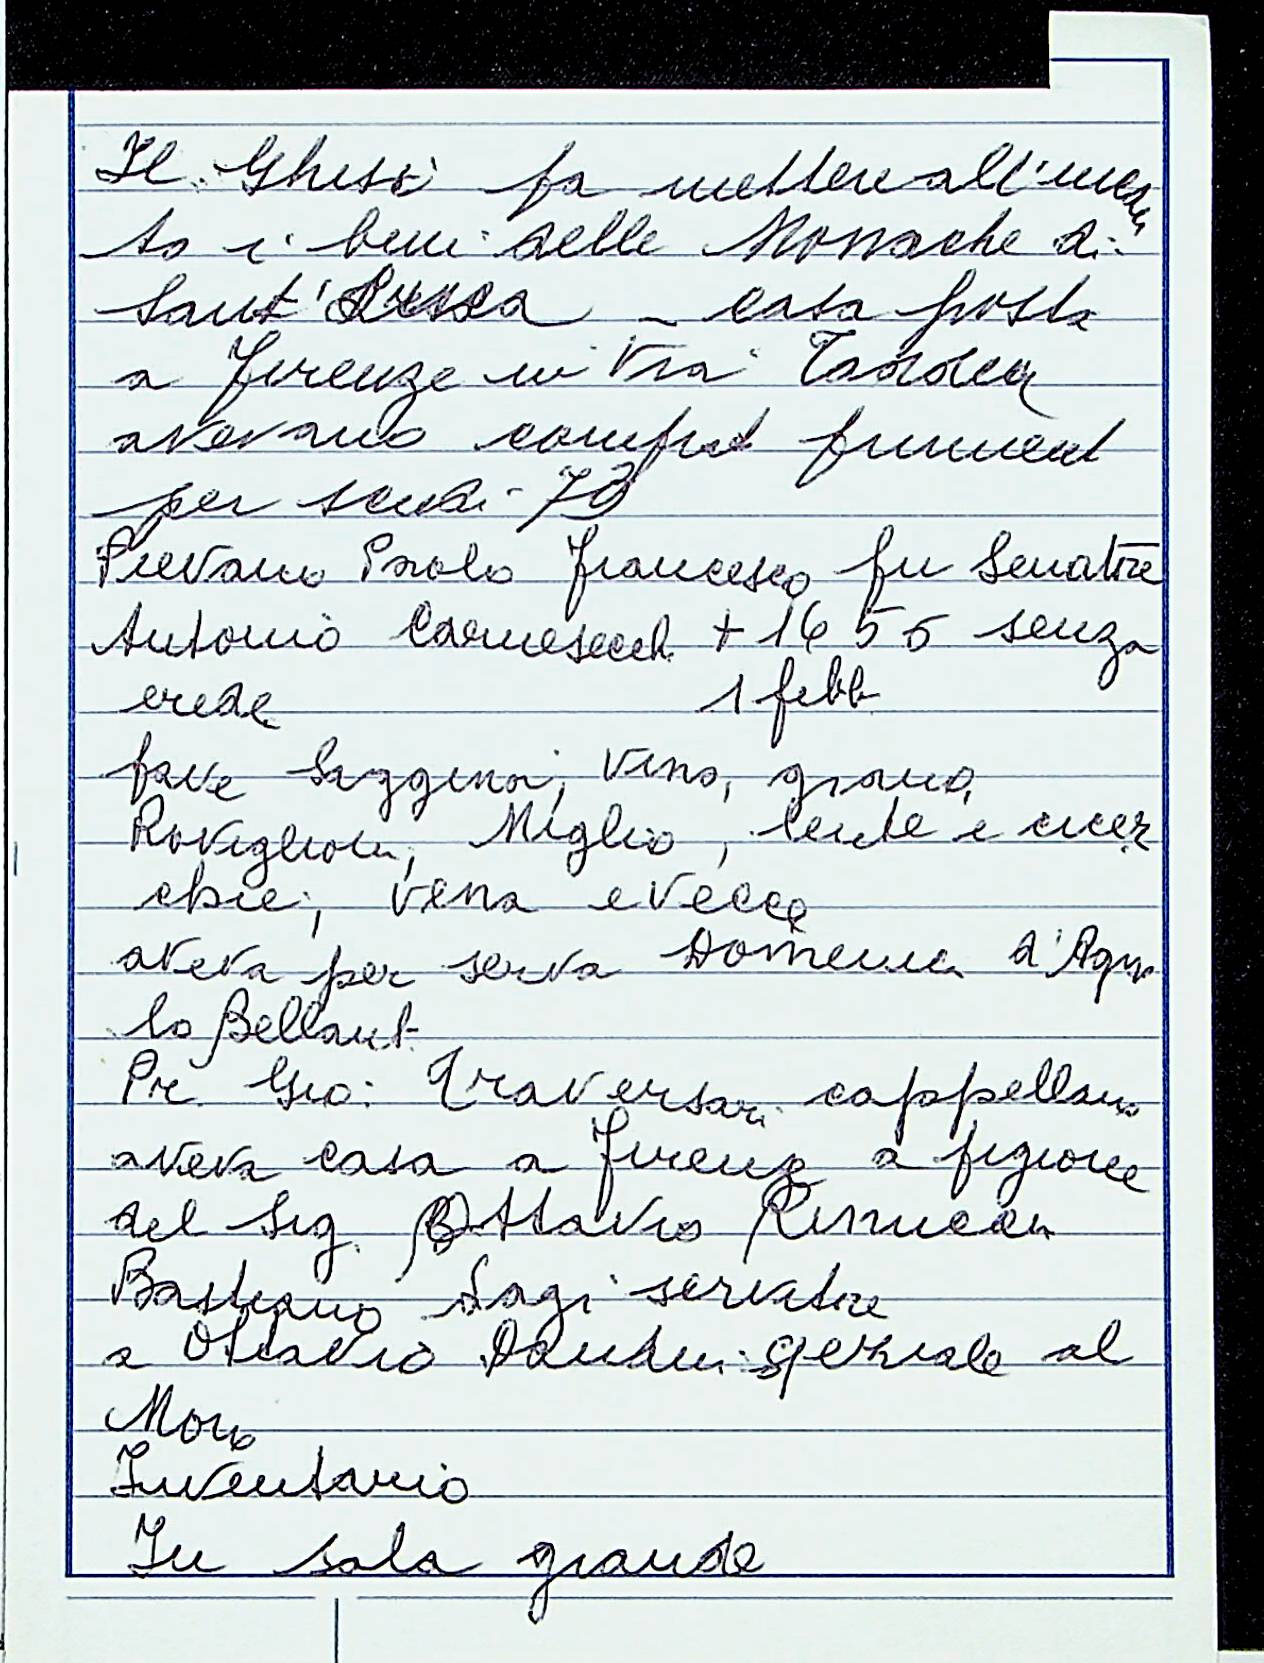 Il Ghisi fa mettere all'incan
to i beni delle Monache di
Sant' - casa posta
a Firenze in Via Taddea
avevano comprat frument
per scudi 73
Pievano Paolo Francesco fu Senatore
Antonio Carnesecch + 1656 senza
erede 1 febb
fave Saggina, vino, grano,
Roviglion, Miglio, lente e cicer
chie, vena e vecce
aveva per serva Domenica d'Agno
lo Bellant
Pr. Gio: Traversari cappellano
aveva casa a Firenz a pigione
del Sig. Ottavio Rinuccin
Bastiano Sagi servitore
a Ottavio Dandini speziale al
Moro
Inventario
In sala grande